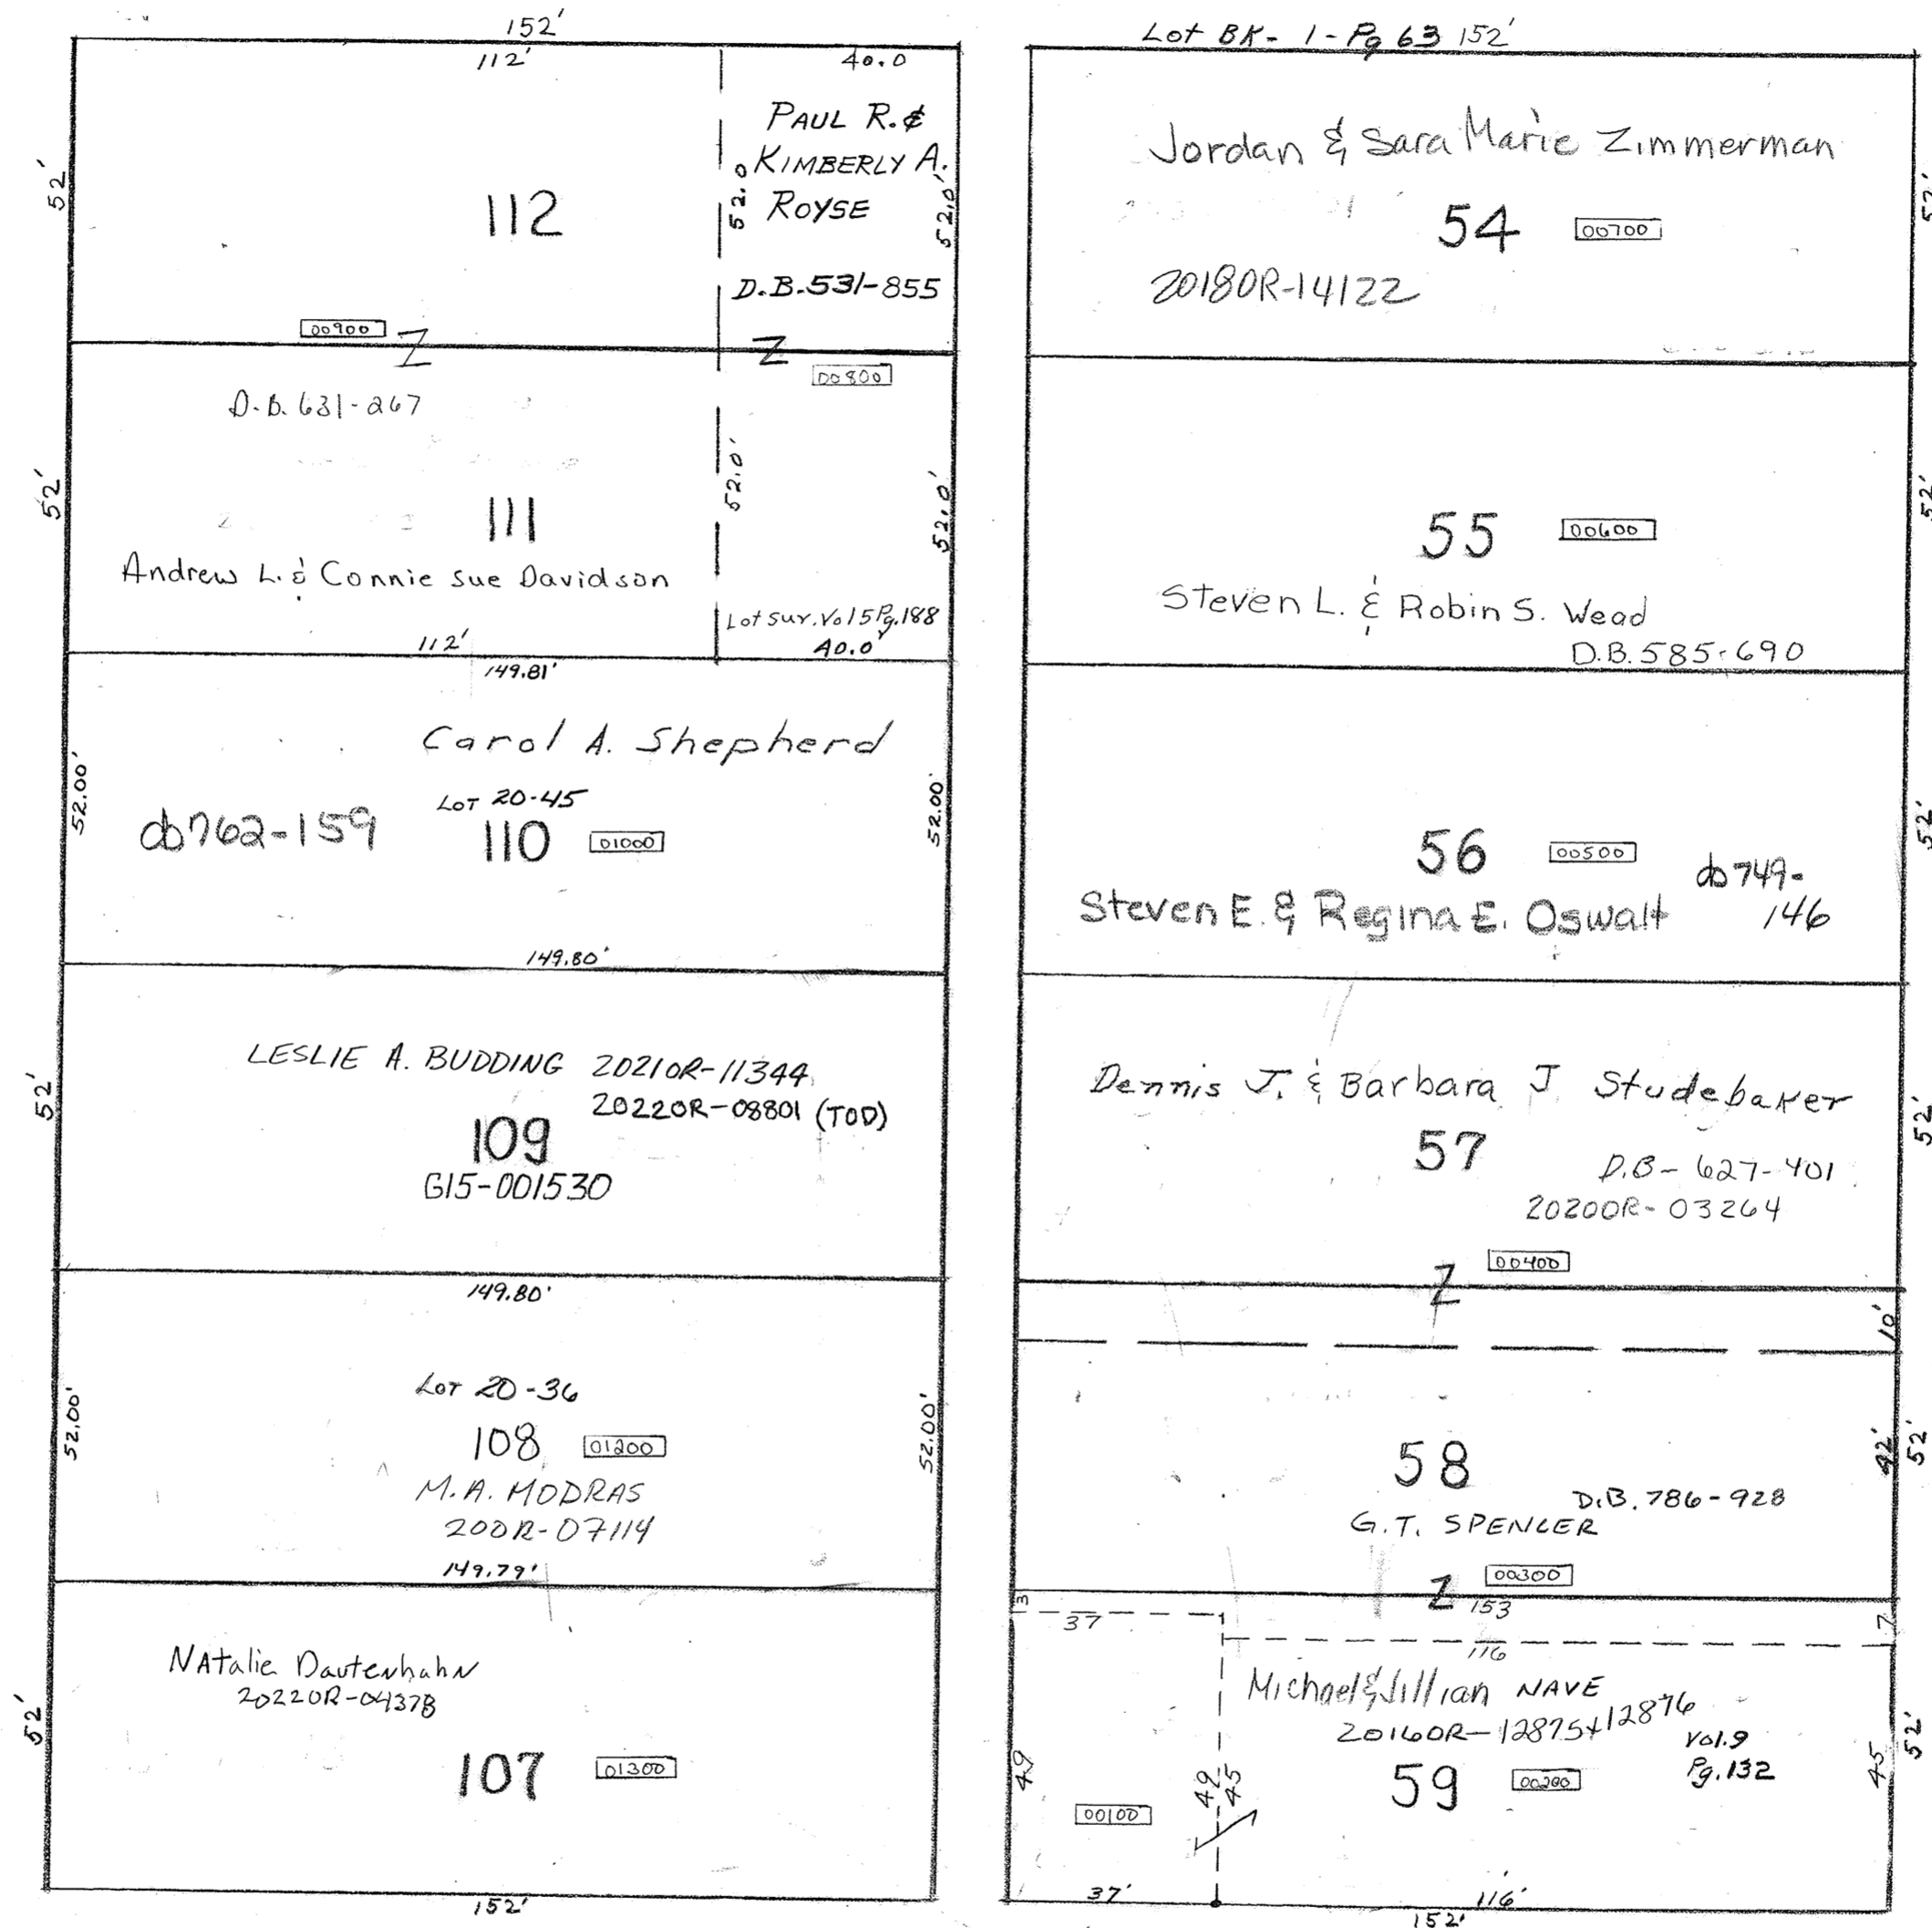 152'
112'
40.0
52'
PAUL R. &
KIMBERLY A.
ROYSE
112
52.0
52.0'
D.B.531-855
00900
Z
Z
00800
D.B. 631-267
52'
52.0'
52.0'
111
Andrew L. & Connie Sue Davidson
Lot Sur. Vol 5 Pg. 188
112'
40.0'
149.81'
Carol A. Shepherd
52.00'
52.00'
LOT 20-45
db762-159
110
01000
149.80'
LESLIE A. BUDDING 2021OR-11344
2022OR-08801 (TOD)
52'
109
G15-001530
149.80'
LOT 20-36
52.00'
52.00'
108
01200
M.A. MODRAS
200R-07114
149.79'
Natalie Dautenhahn
2022OR-04378
52'
107
01300
152'
Lot BK- 1 - Pg 63 152'
Jordan & Sara Marie Zimmerman
52'
54
00700
2018OR-14122
52'
55
00600
Steven L. & Robin S. Wead
D.B. 585-690
52'
56
00500
db749-
146
Steven E. & Regina E. Oswalt
Dennis J. & Barbara J Studebaker
52'
57
D.B- 627-401
2020OR-03264
00400
Z
10'
58
42'
52'
D.B. 786-928
G.T. SPENCER
00300
Z
153
3
37
7
116
Michael & Jillian NAVE
2016OR-12875+12876
Vol.9
Pg.132
52'
49
49
45
59
00200
45
00100
37'
116'
152'